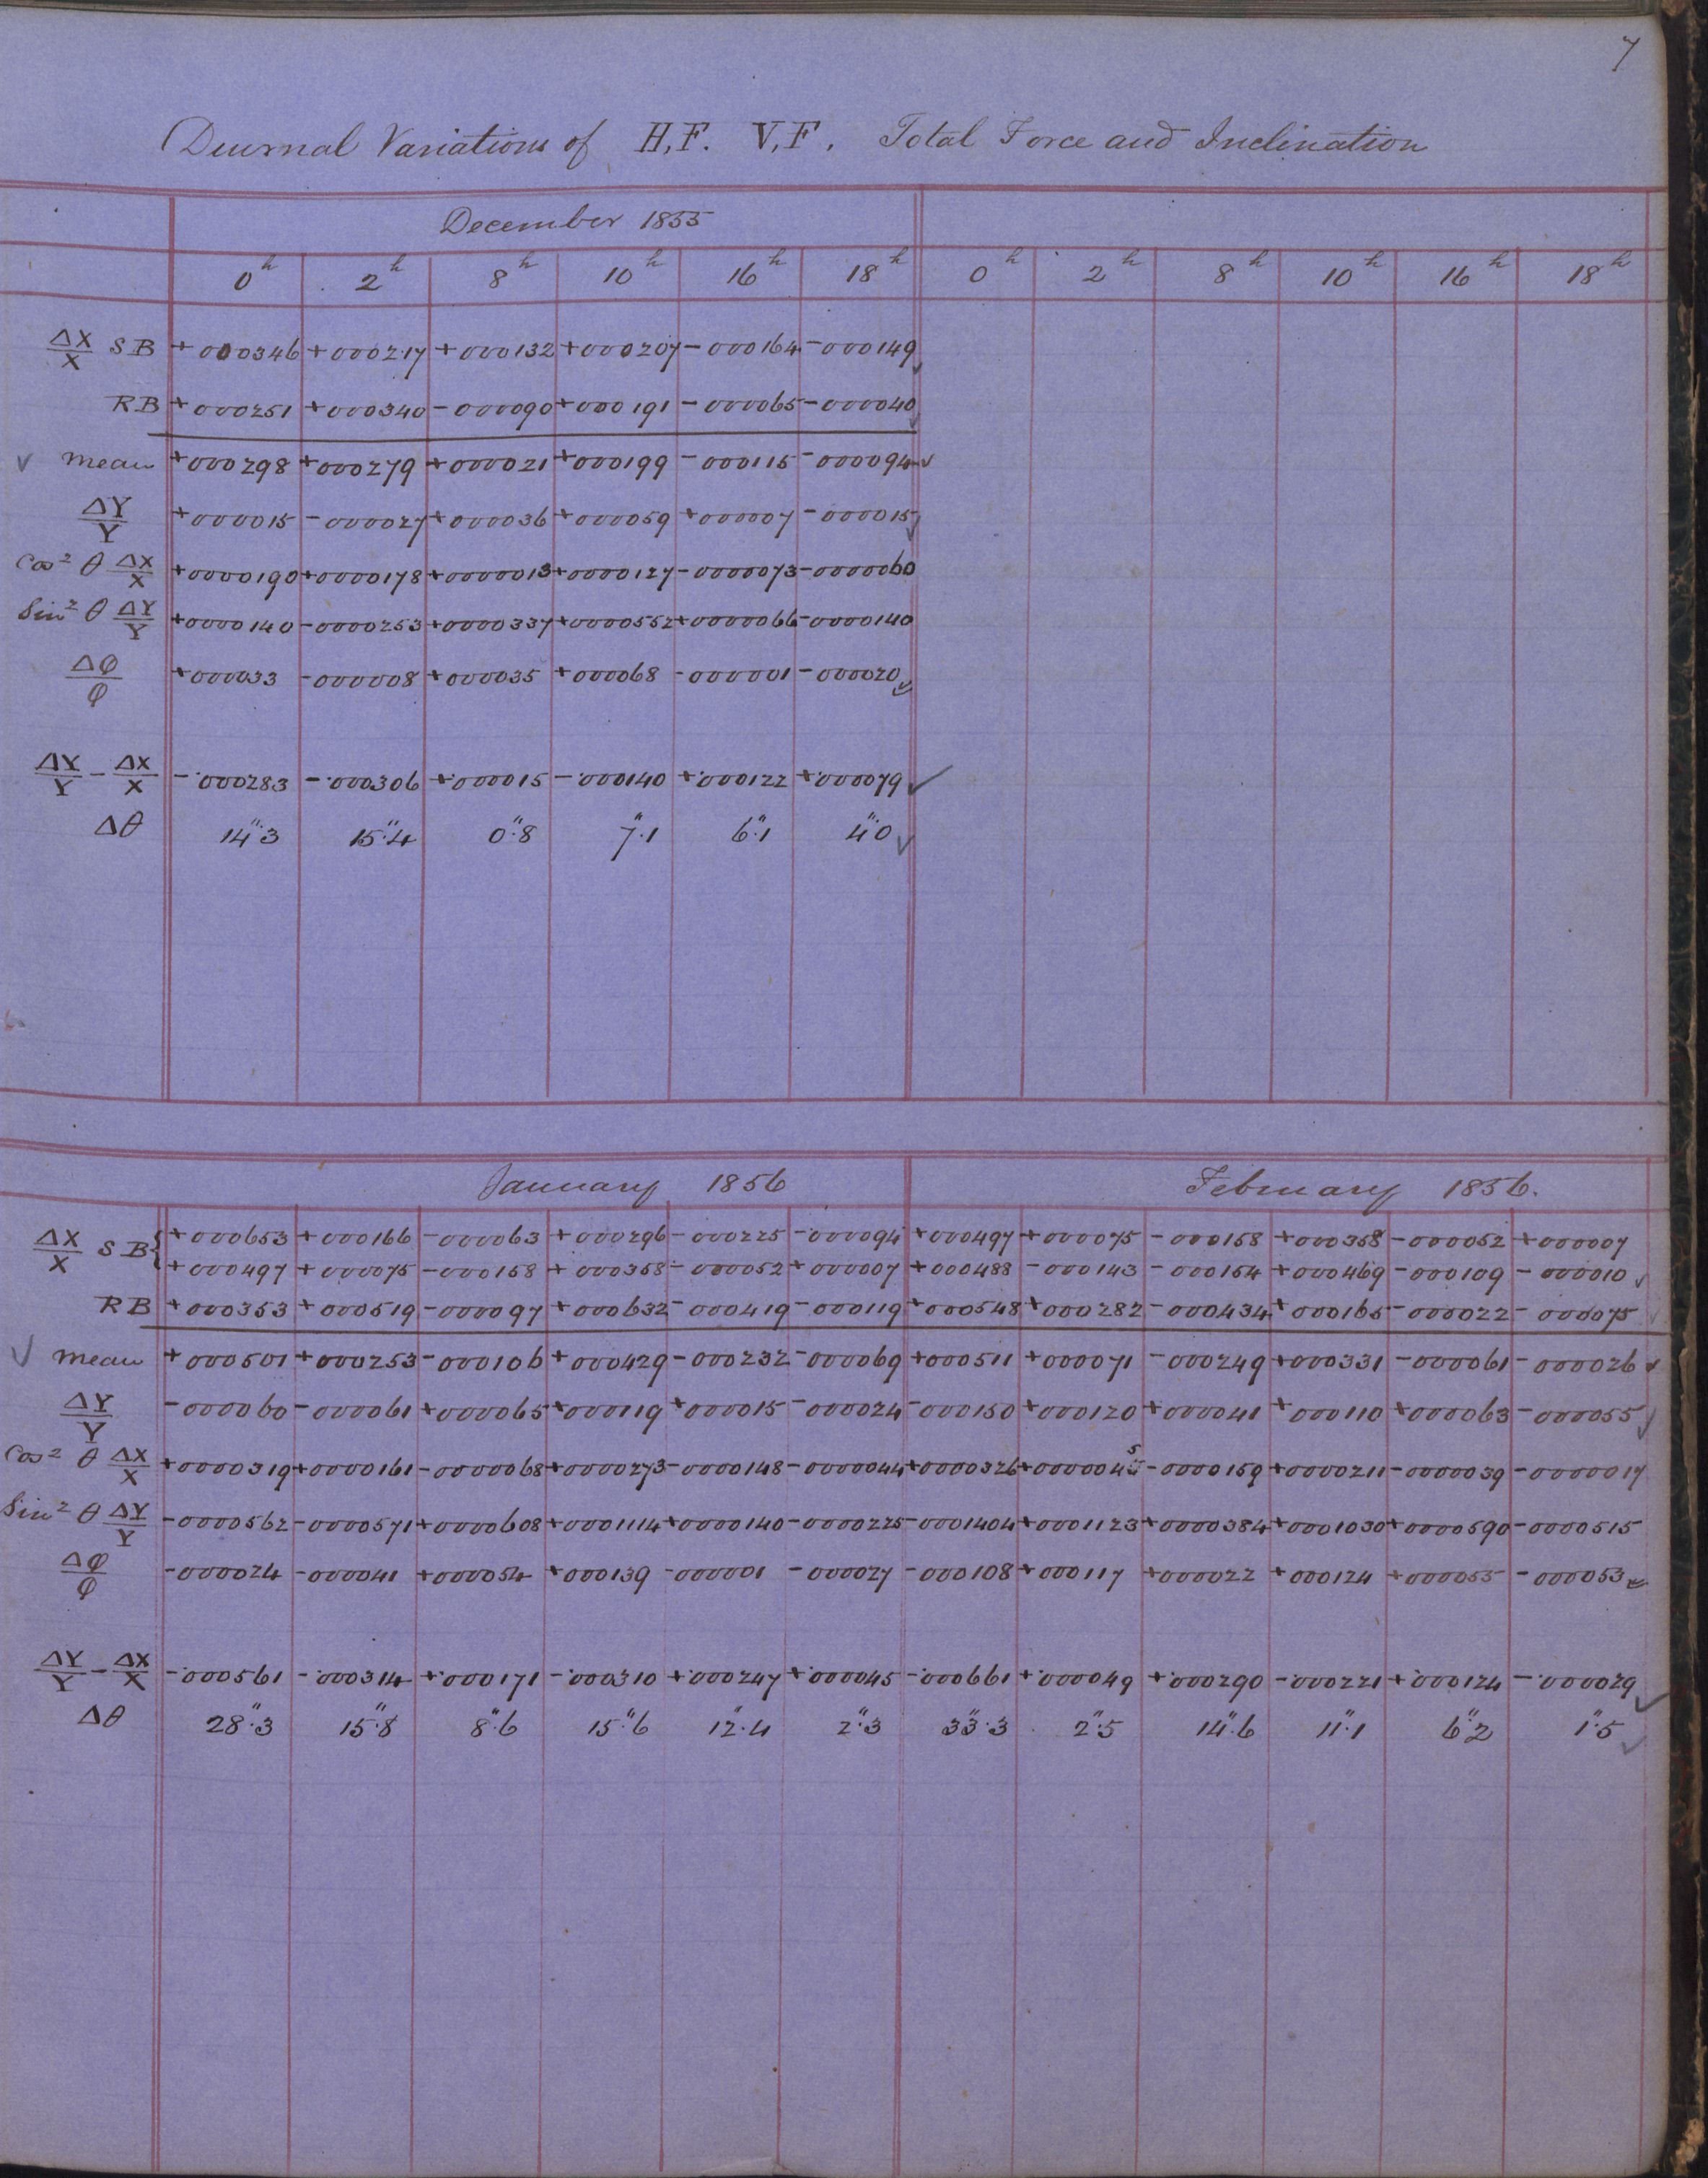 7
Diurnal Variations of H.F. V.F. Total Force and Inclination
December 1855
0h 2h 8h 10h 16h 18h 0h 2h 8h 10h 16h 18h
ΔX/X SB +000346 +000217 +000132 +000207 -000164 -000149
RB +000251 +000340 -000090 +000191 -000065 -000040
✓ Mean +000298 +000279 +000021 +000199 -000115 -000094
ΔY/Y +000015 -000027 +000036 +000059 +000007 -000015
Cos² θ ΔX/X +0000190 +0000178 +0000013 +0000127 -0000073 -0000060
Sin² θ ΔY/Y +0000140 -0000253 +0000337 +0000552 +0000066 -0000140
Δφ/φ +000033 -000008 +000035 +000068 -000001 -000020
ΔY/Y - ΔX/X -·000283 -·000306 +·000015 -·000140 +·000122 +·000079 ✓
Δθ 14".3 15".4 0".8 7".1 6".1 4".0 ✓
January 1856 February 1856.
ΔX/X SB { +000653 +000166 -000063 +000296 -000225 -000094 +000497 +000075 -000158 +000358 -000052 +000007
+000497 +000075 -000158 +000358 -000052 +000007 +000488 -000143 -000154 +000469 -000109 -000010
RB +000353 +000519 -000097 +000632 -000419 -000119 +000548 +000282 -000434 +000165 -000022 -000075
✓ Mean +000501 +000253 -000106 +000429 -000232 -000069 +000511 +000071 -000249 +000331 -000061 -000026
ΔY/Y -000060 -000061 +000065 +000119 +000015 -000024 -000150 +000120 +000041 +000110 +000063 -000055
Cos² θ ΔX/X +0000319 +0000161 -0000068 +0000273 -0000148 -0000044 +0000326 +0000045 -0000159 +0000211 -0000039 -0000017
Sin² θ ΔY/Y -0000562 -0000571 +0000608 +0001114 +0000140 -0000225 -0001404 +0001123 +0000384 +0001030 +0000590 -0000515
Δφ/φ -000024 -000041 +000054 +000139 -000001 -000027 -000108 +000117 +000022 +000124 +000055 -000053
ΔY/Y - ΔX/X -·000561 -·000314 +·000171 -·000310 +·000247 +·000045 -·000661 +·000049 +·000290 -·000221 +·000124 -·000029 ✓
Δθ 28".3 15".8 8".6 15".6 12".4 2".3 33".3 2".5 14".6 11".1 6".2 1".5 ✓